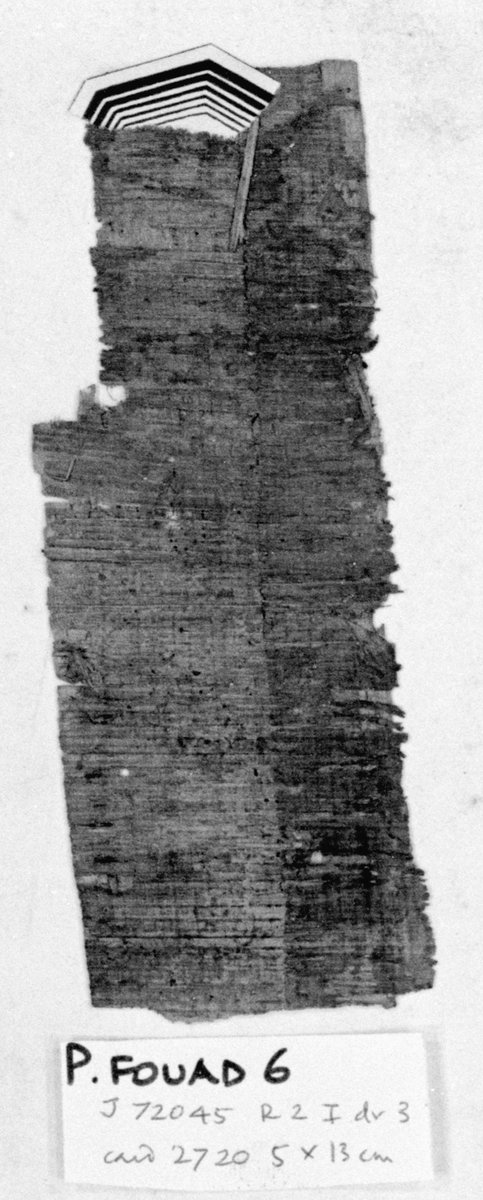 P. FOUAD 6
J 72045 R 2 I dr 3
card 2720 5 x 13 cm